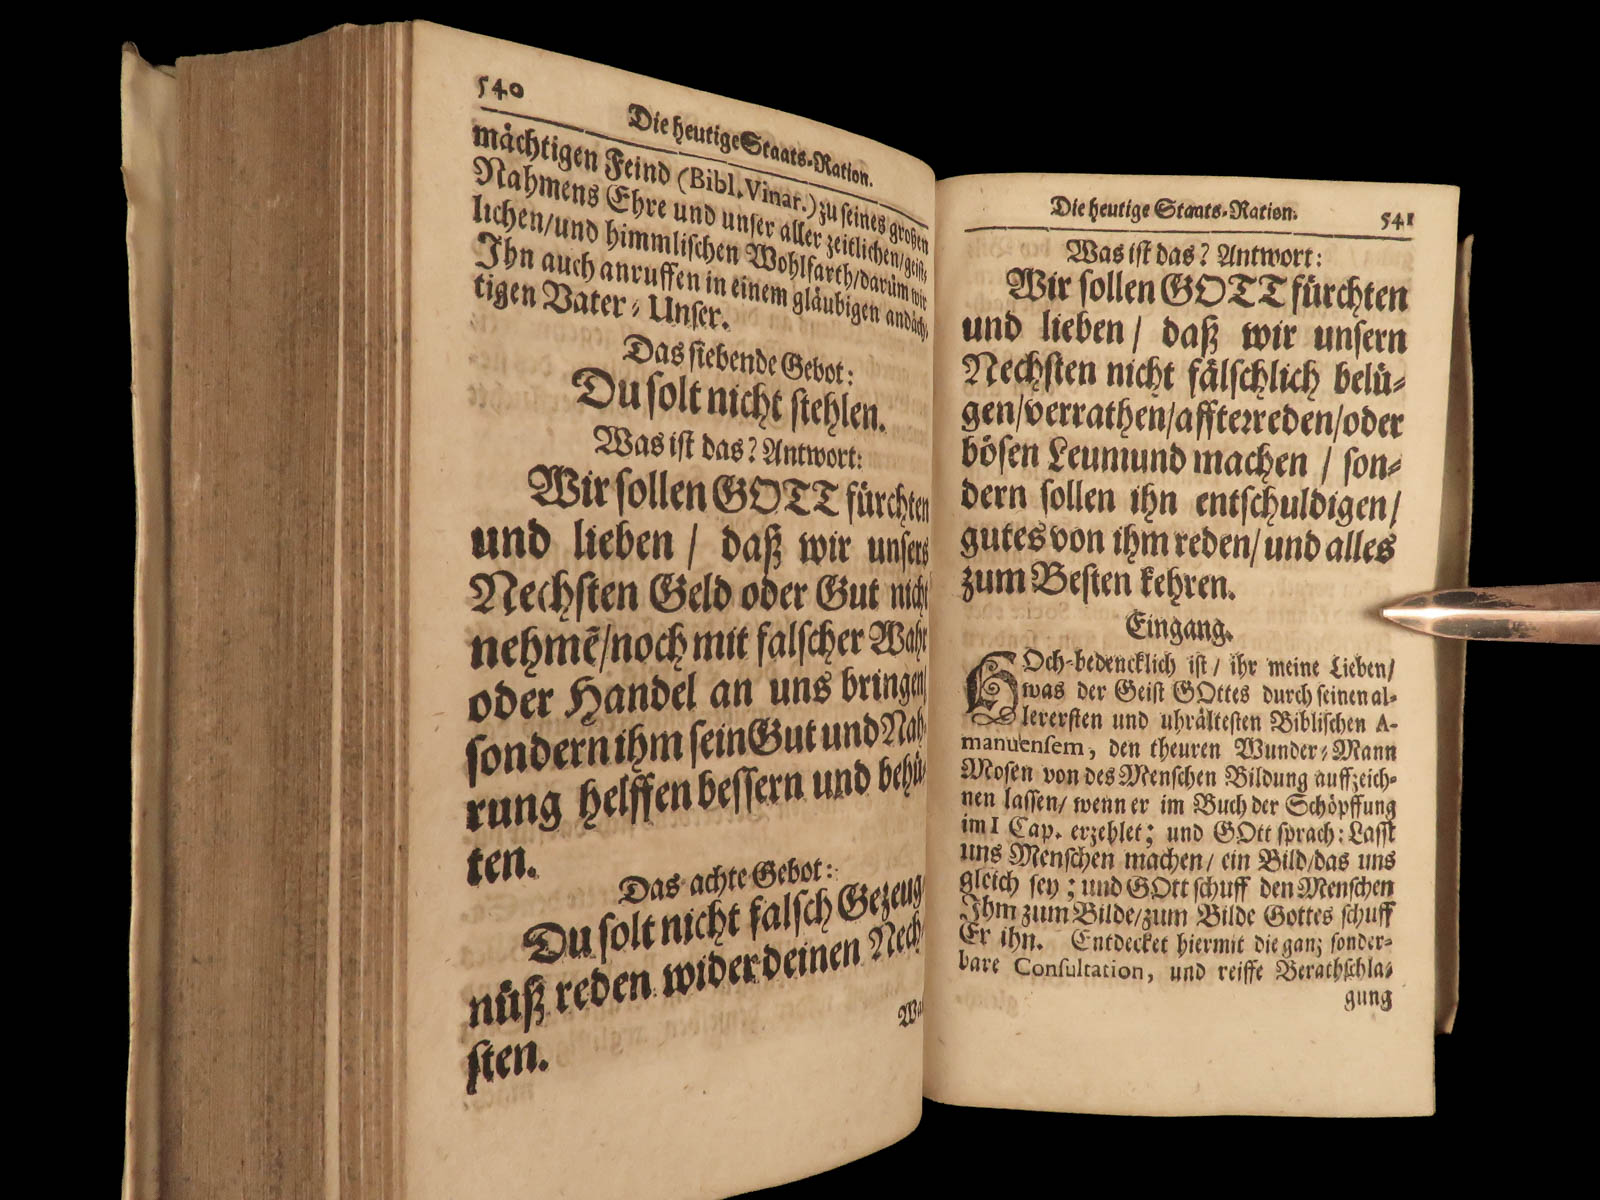 540
Die heutige Staats-Ration.
mächtigen Feind (Bibl. Vinar.) zu seines großen
Nahmens Ehre und unser aller zeitlichen/geist-
lichen/und himmlischen Wohlfarth/darüm wir
Ihn auch anruffen in einem gläubigen andäch-
tigen Vater-Unser.
Das siebende Gebot:
Du solt nicht stehlen.
Was ist das? Antwort:
Wir sollen GOTT fürchten
und lieben / daß wir unsers
Nechsten Geld oder Gut nicht
nehmē/noch mit falscher Wahr
oder Handel an uns bringen/
sondern ihm sein Gut und Nah-
rung helffen bessern und behü-
ten.
Das achte Gebot:
Du solt nicht falsch Gezeug-
nüß reden wider deinen Nech-
sten.
Was
Die heutige Staats-Ration. 541
Was ist das? Antwort:
Wir sollen GOTT fürchten
und lieben / daß wir unsern
Nechsten nicht fälschlich belü-
gen/verrathen/affterreden/oder
bösen Leumund machen / son-
dern sollen ihn entschuldigen/
gutes von ihm reden/und alles
zum Besten kehren.
Eingang.
HOch-bedencklich ist / ihr meine Lieben/
was der Geist GOttes durch seinen al-
lerersten und uhrältesten Biblischen A-
manuensem, den theuren Wunder-Mann
Mosen von des Menschen Bildung auffzeich-
nen lassen/ wenn er im Buch der Schöpffung
im I Cap. erzehlet; und GOtt sprach: Lasst
uns Menschen machen/ ein Bild/das uns
gleich sey; und GOtt schuff den Menschen
Ihm zum Bilde/zum Bilde Gottes schuff
Er ihn. Entdecket hiermit die ganz sonder-
bare Consultation, und reiffe Berathschla-
gung